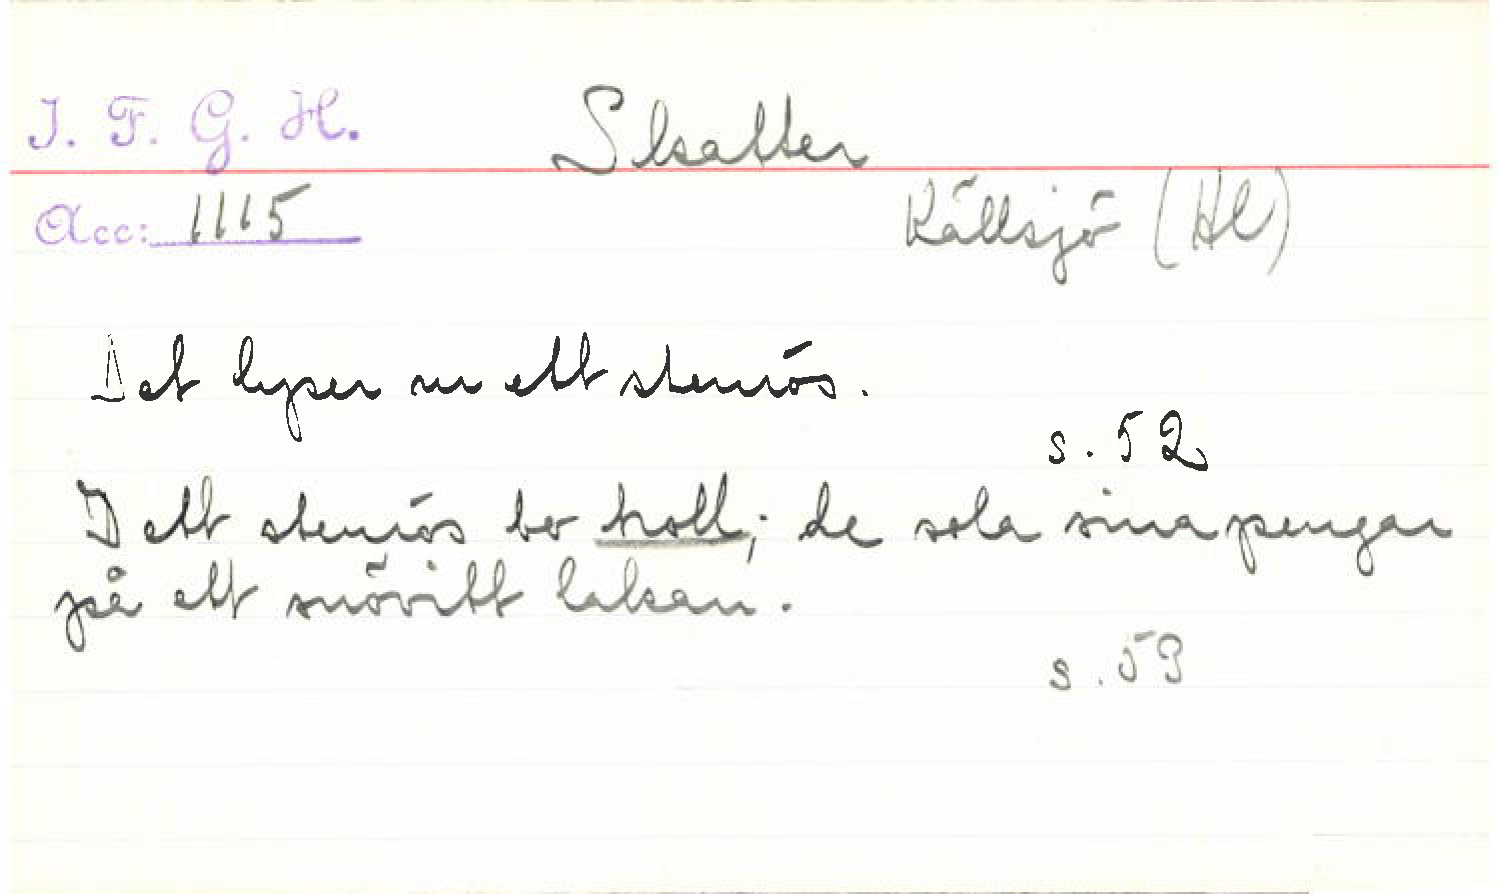 I. F. G. H.
Skatter
Acc: 1115
Källsjö (Hl)
Det lyser ur ett stenrös.
s. 52
I ett stenrös bo troll; de sola sina pengar
på ett snövitt lakan.
s. 53